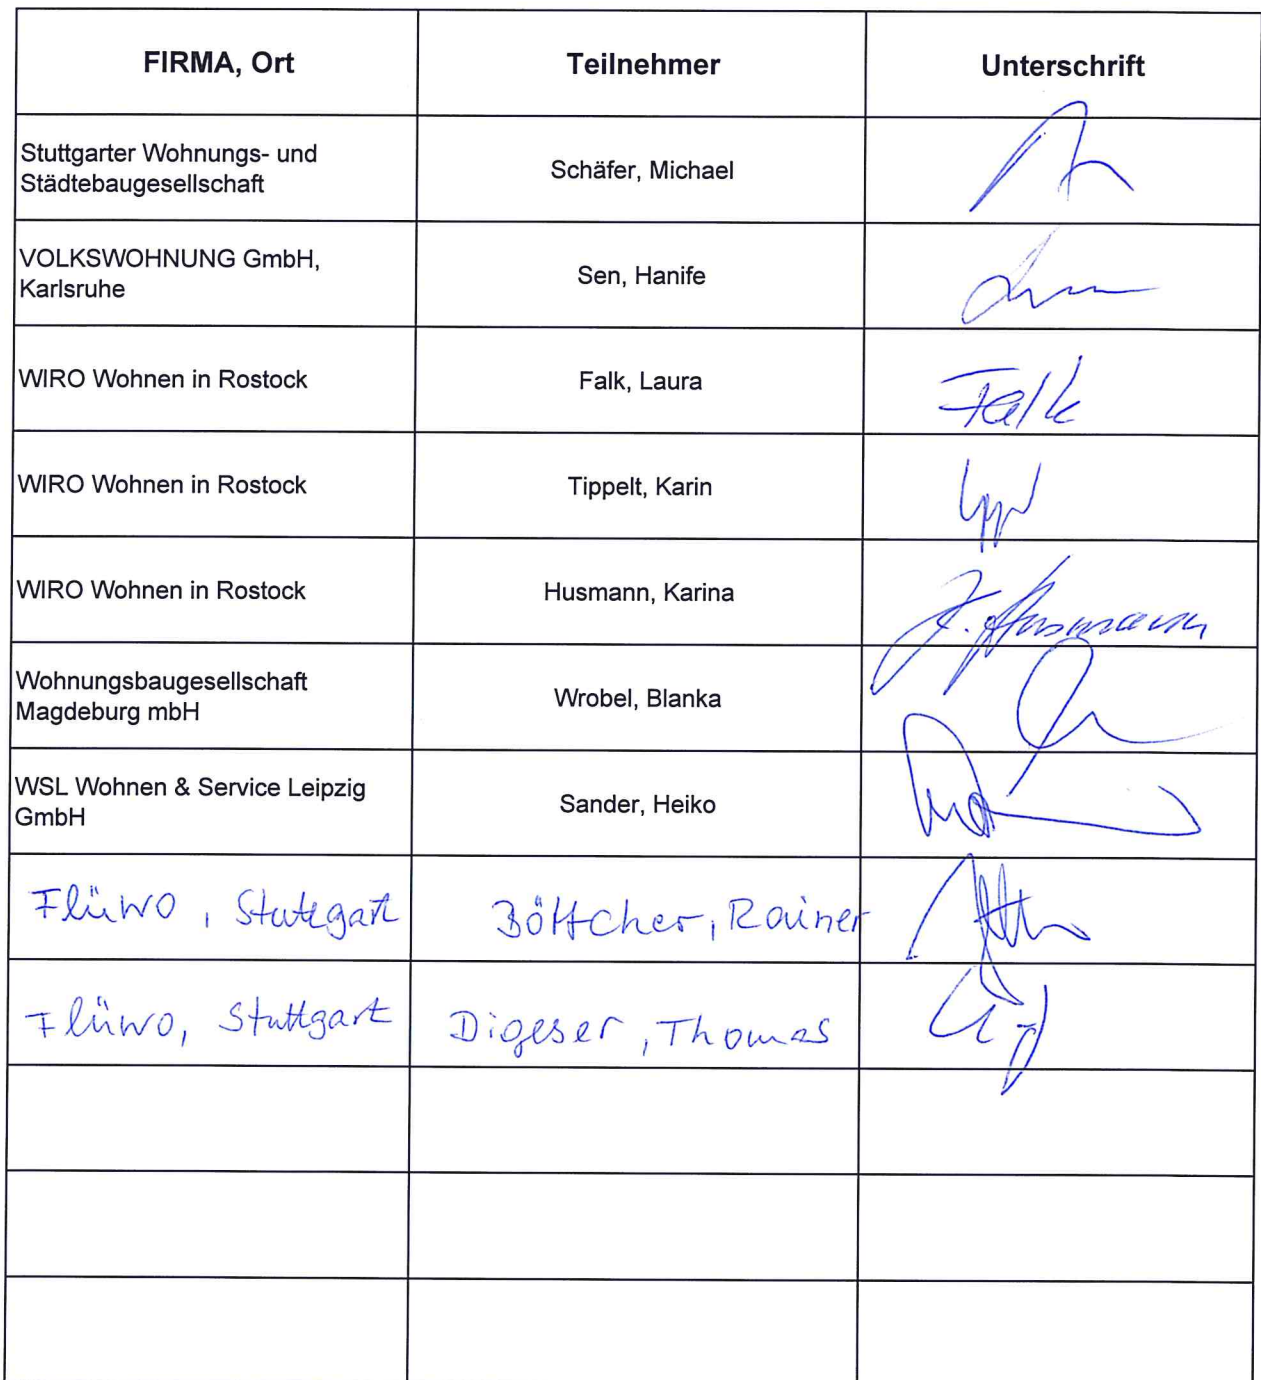 FIRMA, Ort
Teilnehmer
Unterschrift
Stuttgarter Wohnungs- und
Städtebaugesellschaft
Schäfer, Michael
VOLKSWOHNUNG GmbH,
Karlsruhe
Sen, Hanife
WIRO Wohnen in Rostock
Falk, Laura
Falk
WIRO Wohnen in Rostock
Tippelt, Karin
WIRO Wohnen in Rostock
Husmann, Karina
K. Husmann
Wohnungsbaugesellschaft
Magdeburg mbH
Wrobel, Blanka
WSL Wohnen & Service Leipzig
GmbH
Sander, Heiko
Flüwo, Stuttgart
Böttcher, Rainer
Flüwo, Stuttgart
Digeser, Thomas